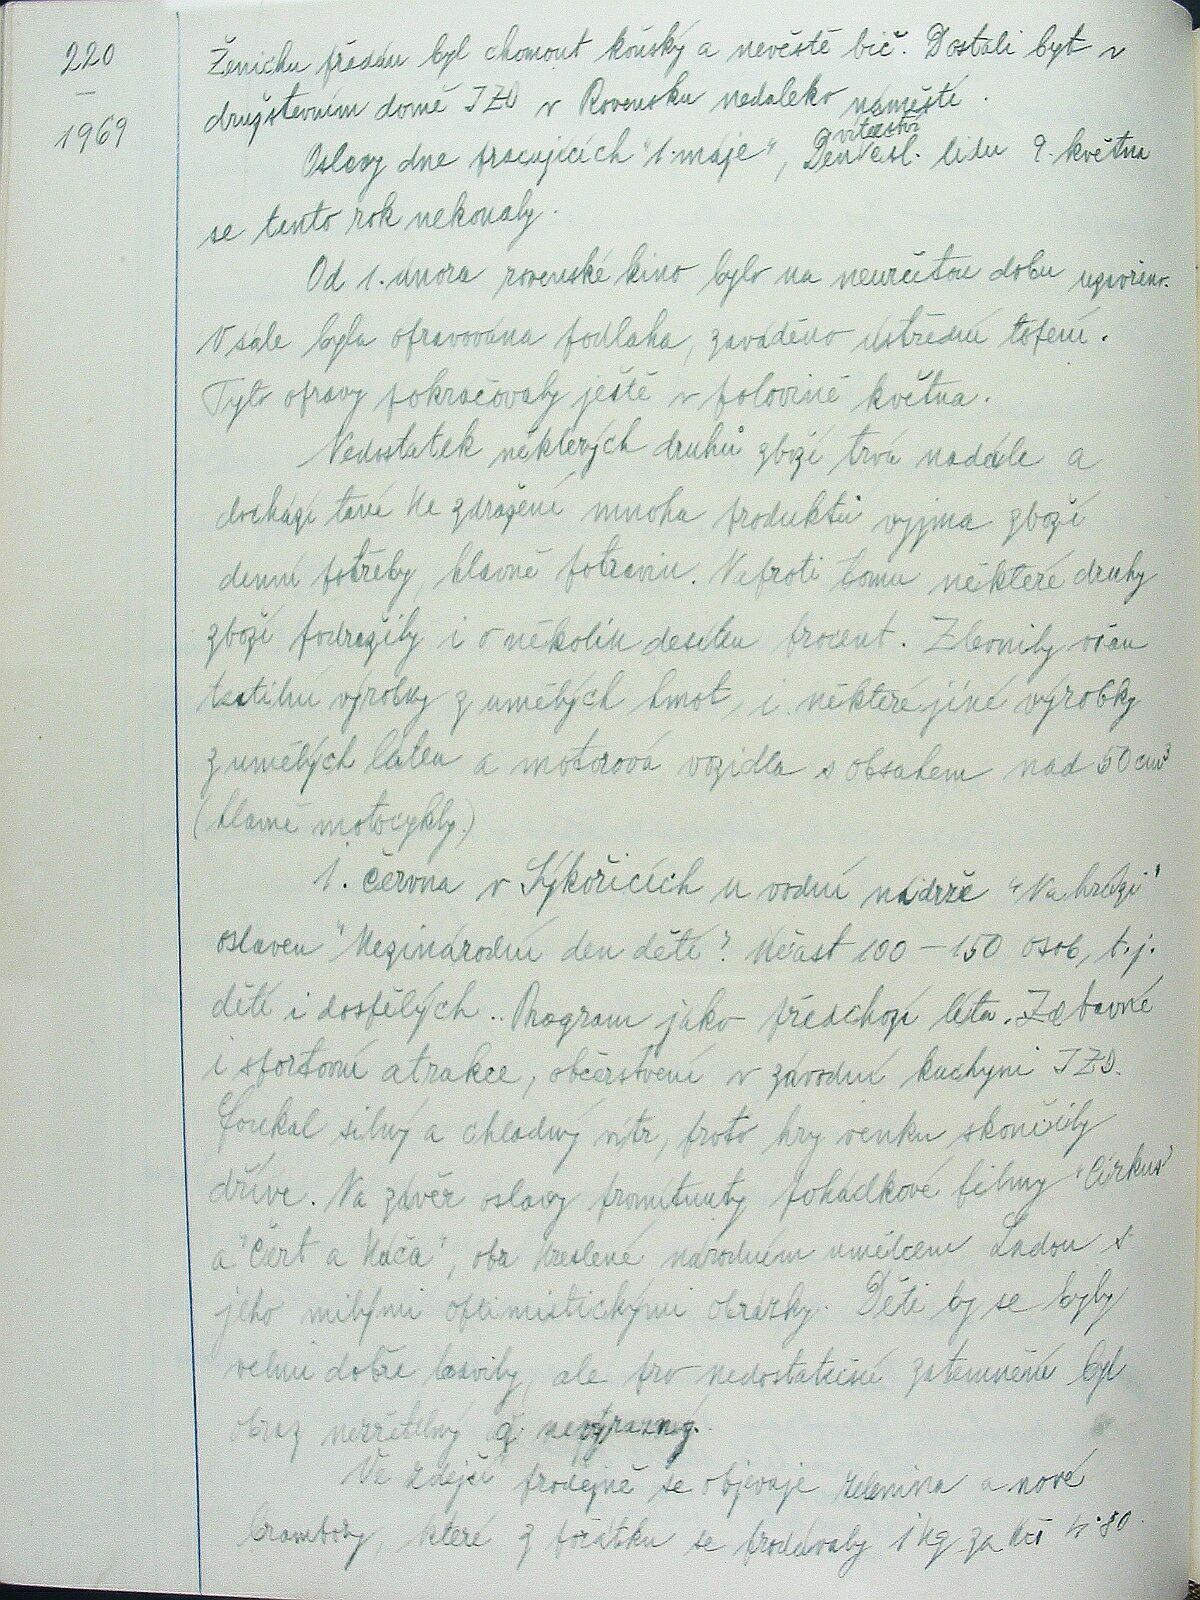 220
1969
Ženichu předán byl chomout koňský a nevěstě bič. Dostali byt v
družstevním domě JZD v Rovensku nedaleko náměstí.
vítězství
Oslavy dne pracujících "1. máje", Den čsl. lidu 9. května
se tento rok nekonaly.
Od 1. února rovenské kino bylo na neurčitou dobu uzavřeno.
V sále byla opravována podlaha, zaváděno ústřední topení.
Tyto opravy pokračovaly ještě v polovině května.
Nedostatek některých druhů zboží trvá nadále a
dochází také ke zdražení mnoha produktů vyjma zboží
denní potřeby, hlavně potravin. Naproti tomu některé druhy
zboží podražily i o několik desítek procent. Zlevnily však
textilní výrobky z umělých hmot, i některé jiné výrobky
z umělých látek a motorová vozidla s obsahem nad 50 cm³
(hlavně motocykly.)
1. června v Sýkořicích u vodní nádrže "Na hrázi"
oslaven "Mezinárodní den dětí". Účast 100 – 150 osob, t.j.
dětí i dospělých.. Program jako předchozí léta. Zábavné
i sportovní atrakce, občerstvení v závodní kuchyni JZD.
Foukal silný a chladný vítr, proto hry venku skončily
dříve. Na závěr oslavy promítnuty pohádkové filmy "Cirkus"
a "Čert a Káča", oba kreslené národním umělcem Ladou s
jeho milými optimistickými obrázky. Děti by se byly
velmi dobře bavily, ale pro nedostatečné zatemnění byl
obraz nezřetelný a nevýrazný.
Ve zdejší prodejně se objevuje zelenina a nové
brambory, které z počátku se prodávaly 1 kg za Kčs 4.80.